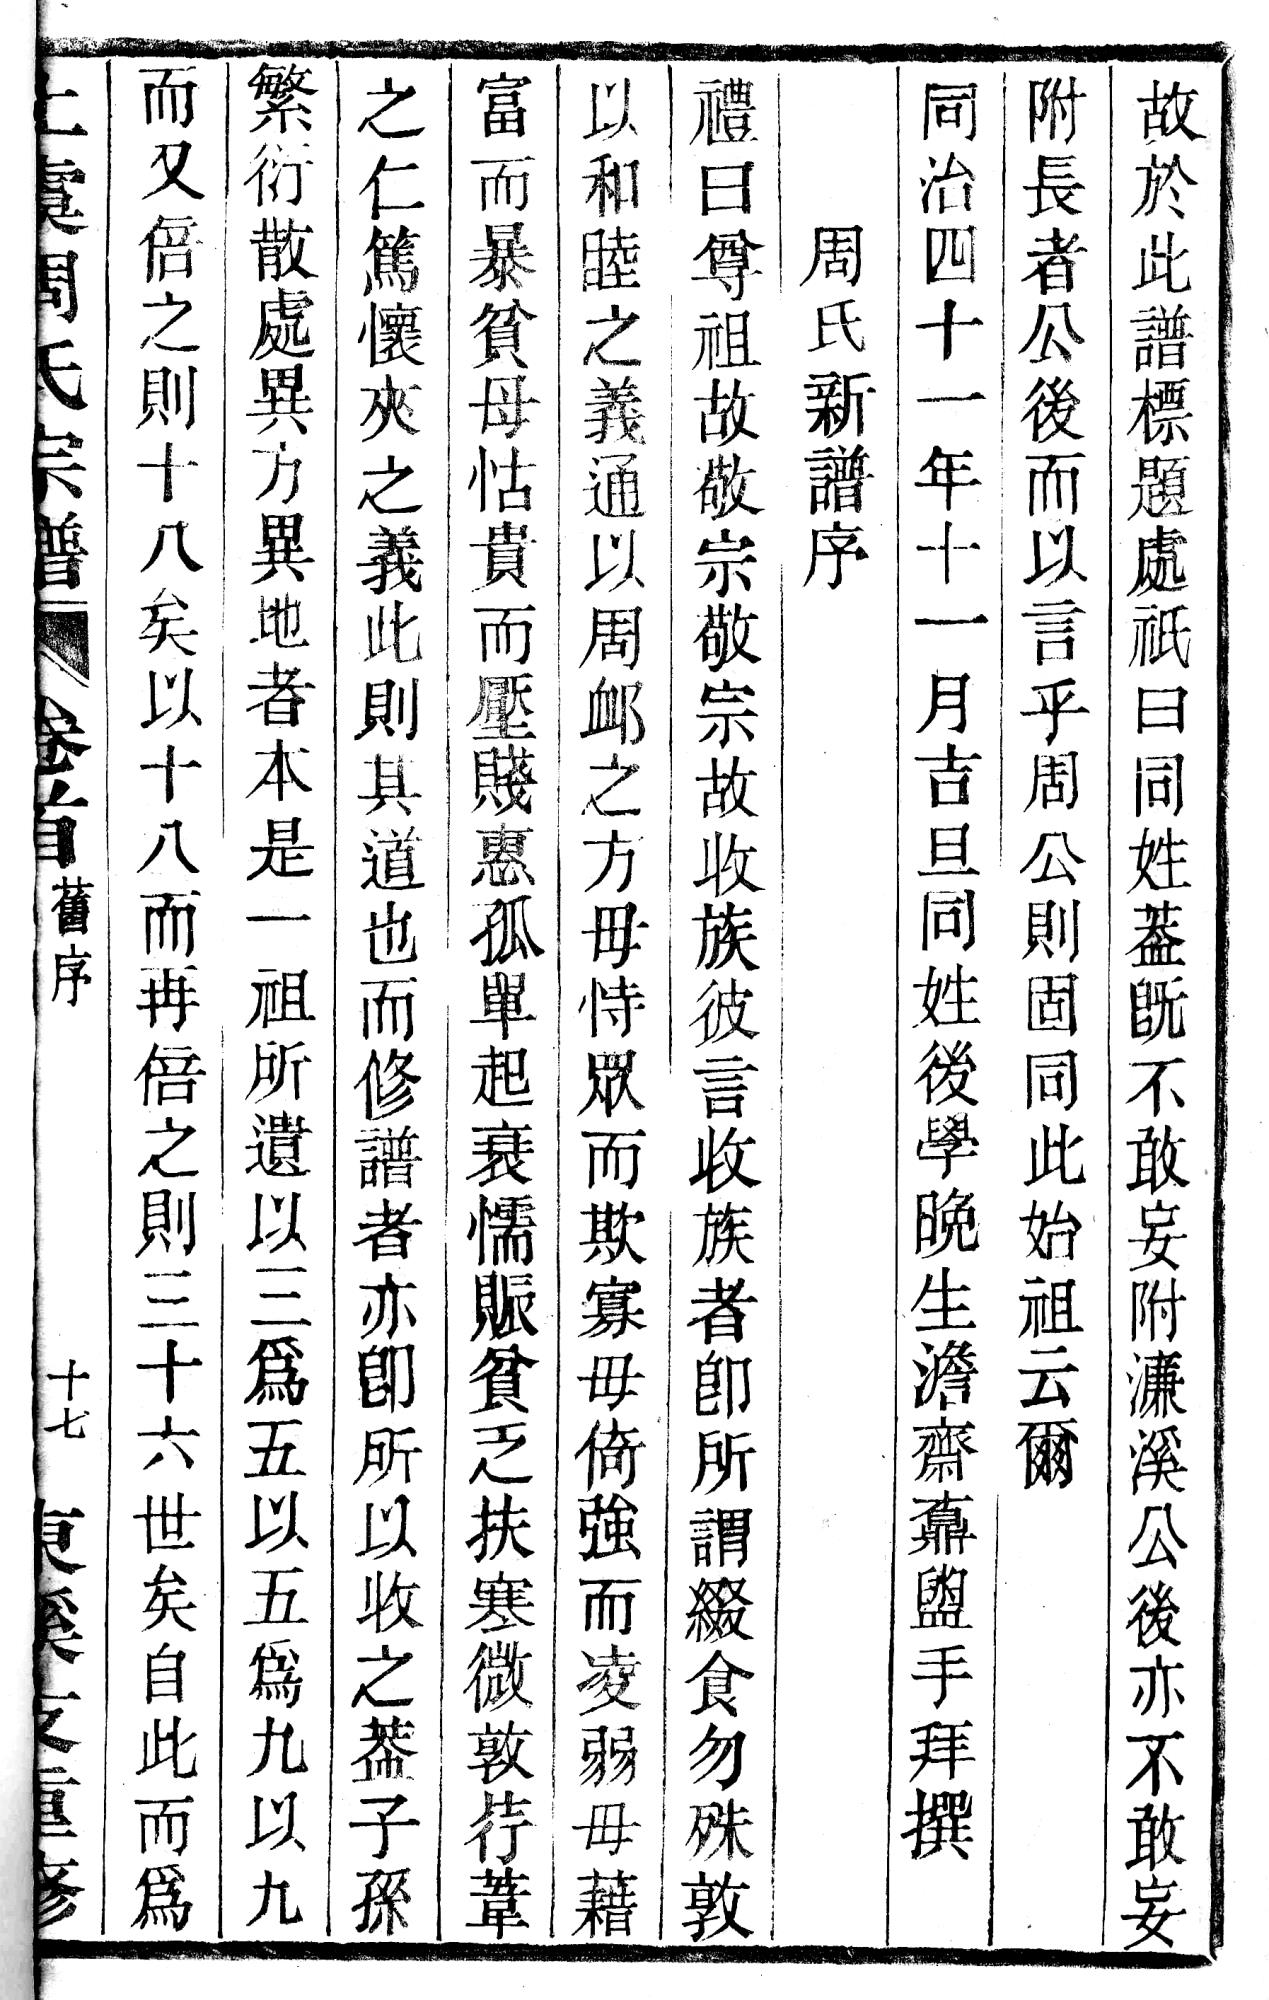 故於此譜標題處祇曰同姓葢既不敢妄附濂溪公後亦不敢妄
附長者公後而以言乎周公則固同此始祖云爾
同治四十一年十一月吉旦同姓後學晚生澹齋鼐盥手拜撰
周氏新譜序
禮曰尊祖故敬宗敬宗故收族彼言收族者卽所謂綴食勿殊敦
以和睦之義通以周䘏之方毋恃眾而欺寡毋倚強而凌弱毋藉
富而暴貧毋怙貴而壓賤惠孤單起衰懦賑貧乏扶寒微敦荇葦
之仁篤懷夾之義此則其道也而修譜者亦卽所以收之葢子孫
繁衍散處異方異地者本是一祖所遺以三爲五以五爲九以九
而又倍之則十八矣以十八而再倍之則三十六世矣自此而爲
上虞周氏宗譜 卷首 舊序 十七 東溪支重修